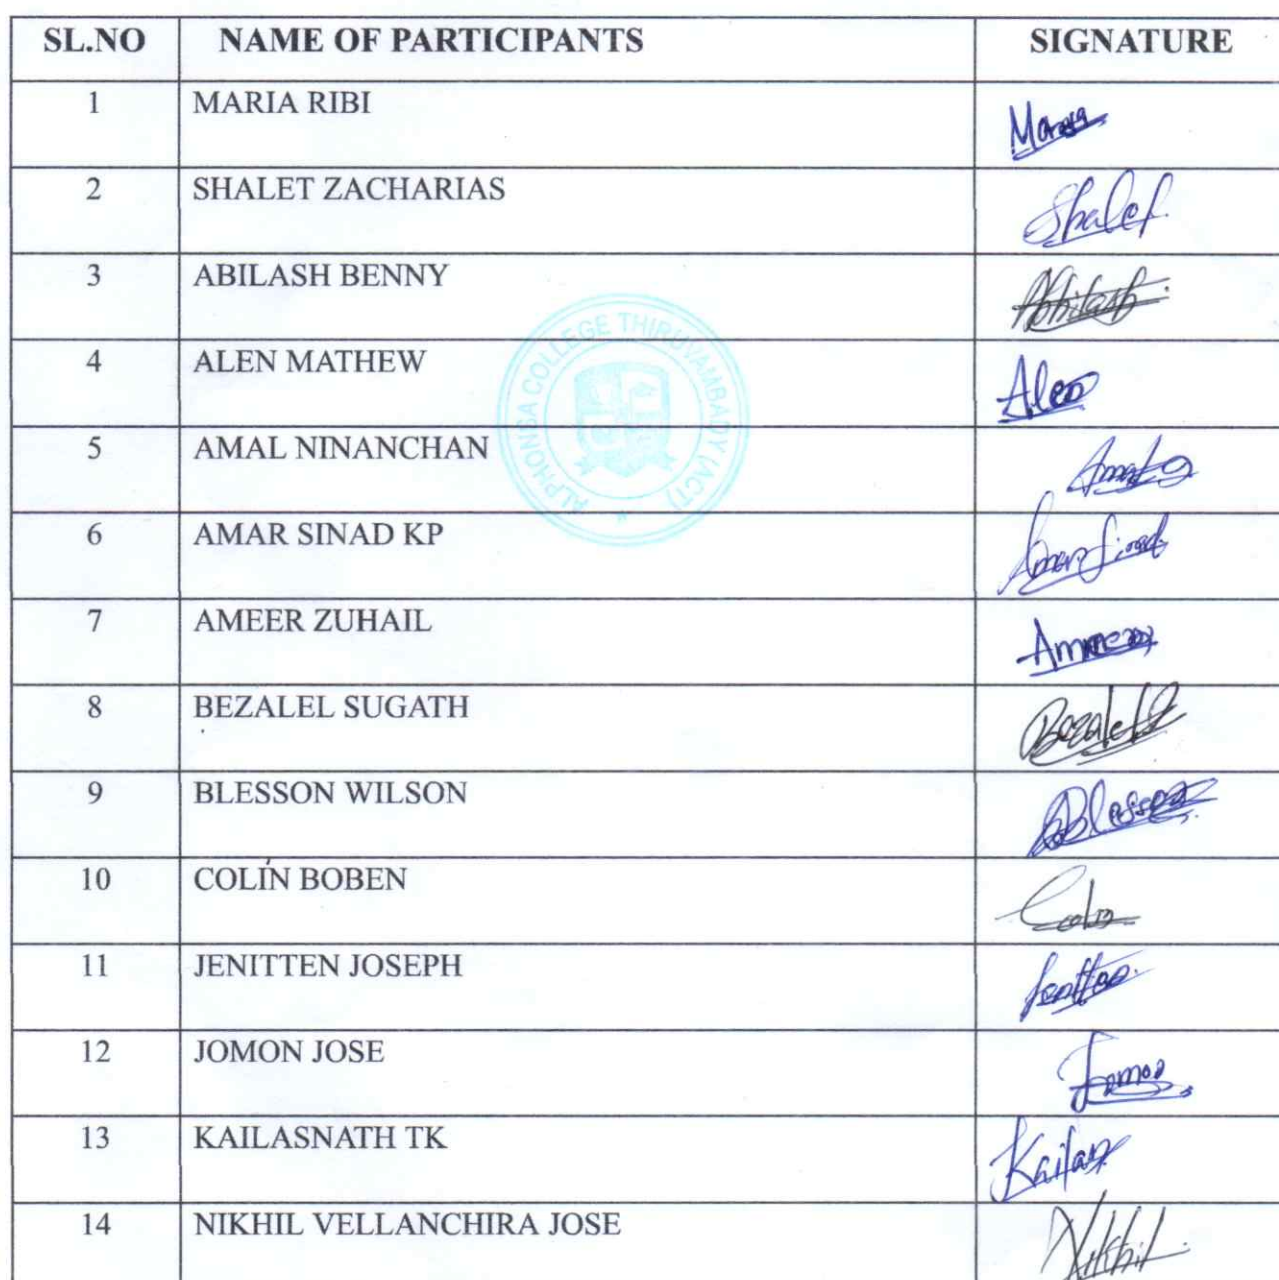 SL.NO NAME OF PARTICIPANTS SIGNATURE
1 MARIA RIBI Maria
2 SHALET ZACHARIAS Shalet
3 ABILASH BENNY Abhilash
4 ALEN MATHEW Alen
ALPHONSA COLLEGE THIRUVAMBADY (ACT)
5 AMAL NINANCHAN Amal
6 AMAR SINAD KP Amar Sinad
7 AMEER ZUHAIL Ameer
8 BEZALEL SUGATH Bezalel
9 BLESSON WILSON Blesson
10 COLIN BOBEN Colin
11 JENITTEN JOSEPH Jenitten
12 JOMON JOSE Jomon
13 KAILASNATH TK Kailas
14 NIKHIL VELLANCHIRA JOSE Nikhil